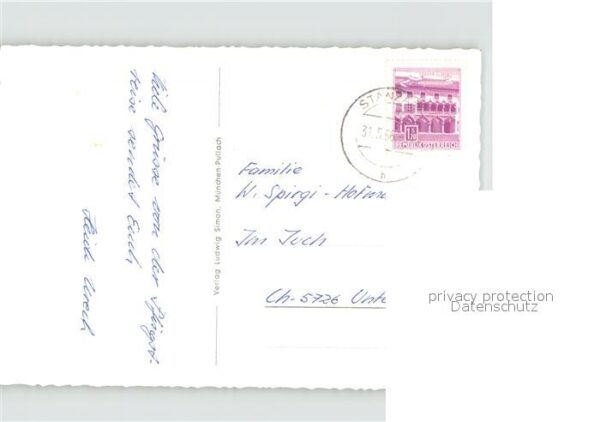 Viele Grüsse von der Pfingst-
reise sendet Euch
Heidi
Verlag Ludwig Simon, München-Pullach
STANS
31.5.
h
REPUBLIK ÖSTERREICH
Familie
W. Spirgi-Hofma
Im Juch
Ch-5726 Unte
privacy protection
Datenschutz